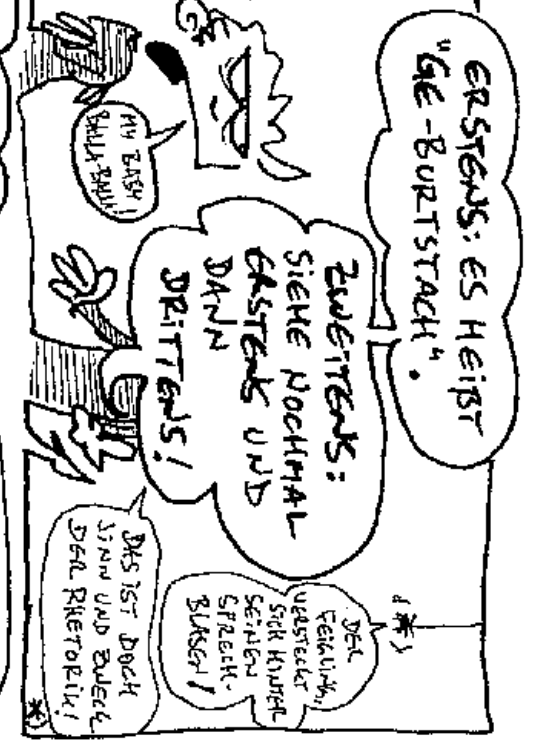 ERSTENS: ES HEIßT
"GE-BURTSTACH".
ZWEITENS:
SIEHE NOCHMAL
ERSTENS UND
DANN
DRITTENS!
MY BABY
BALLA-BALLA!
DER
FEIGLING,
VERSTECKT
SICH HINTER
SEINEN
SPRECH-
BLASEN!
DAS IST DOCH
SINN UND ZWECK
DER RHETORIK!